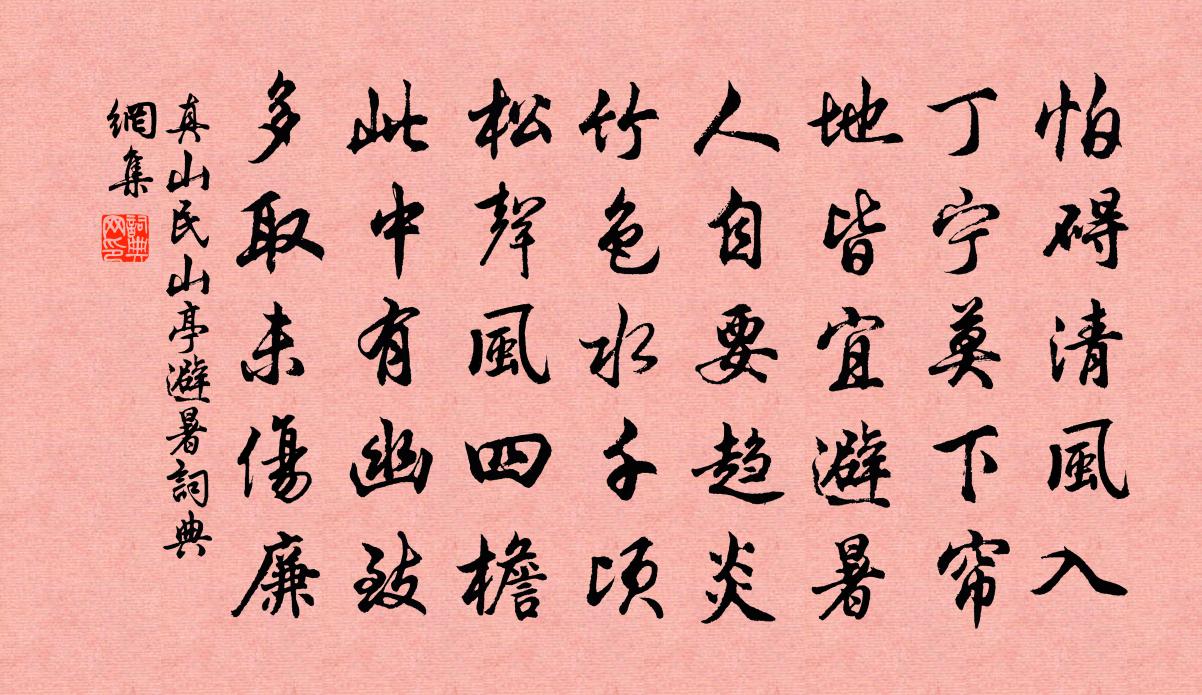 怕碍清風入
丁宁莫下帘
地皆宜避暑
人自要趋炎
竹色水千顷
松聲風四檐
此中有幽致
多取未傷廉
真山民山亭避暑詞典
網集
詞典网印